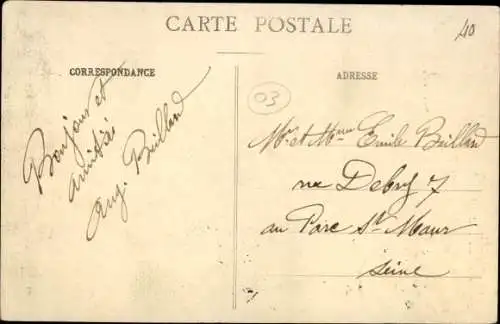 CARTE POSTALE
40
CORRESPONDANCE
ADRESSE
03
Bonjour et
amitiés
Aug. Brilland
Mr. et Mme Emile Brilland
rue Debry 7
au Parc St. Maur
Seine